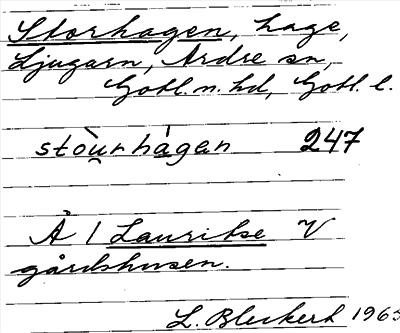 Storhagen, hage,
Ljugarn, Ardre sn,
Gotl. n. hd, Gotl. l.
stòu̯rhágan 247
Å 1 Laurikse V
gårdshusen.
L. Bleckert 1965